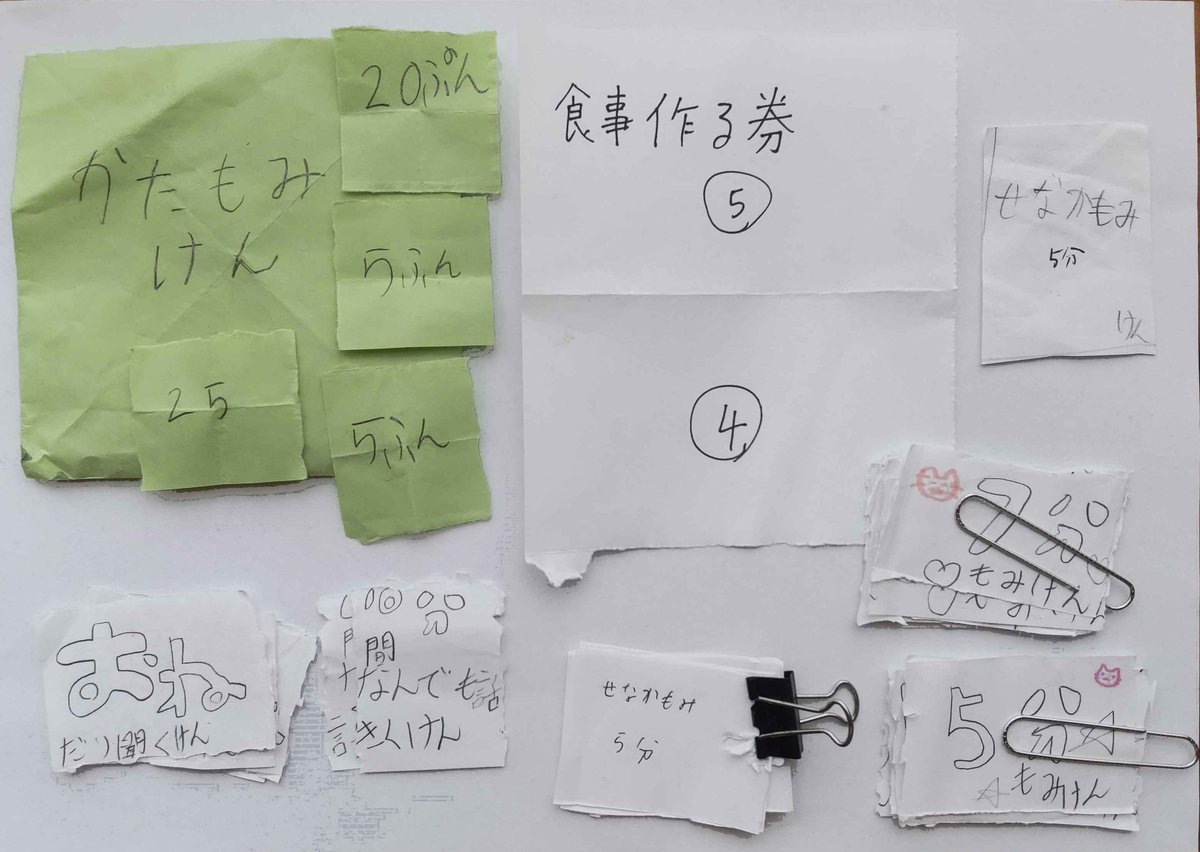 かたもみ
けん
20ぷん
5ふん
25
5ふん
食事作る券
⑤
④
せなかもみ
5分
けん
7分
♡もみけん
5分☆
☆もみけん
せなかもみ
5分
おねだり聞くけん
10分
間
なんでも話
きくけん